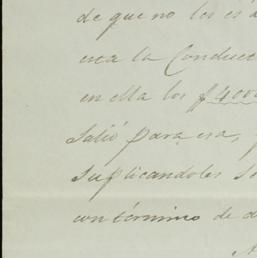 de que no les es d
esta la Conduct
en ella los $4000
Salió para esa,
suplicandoles s
con término de d